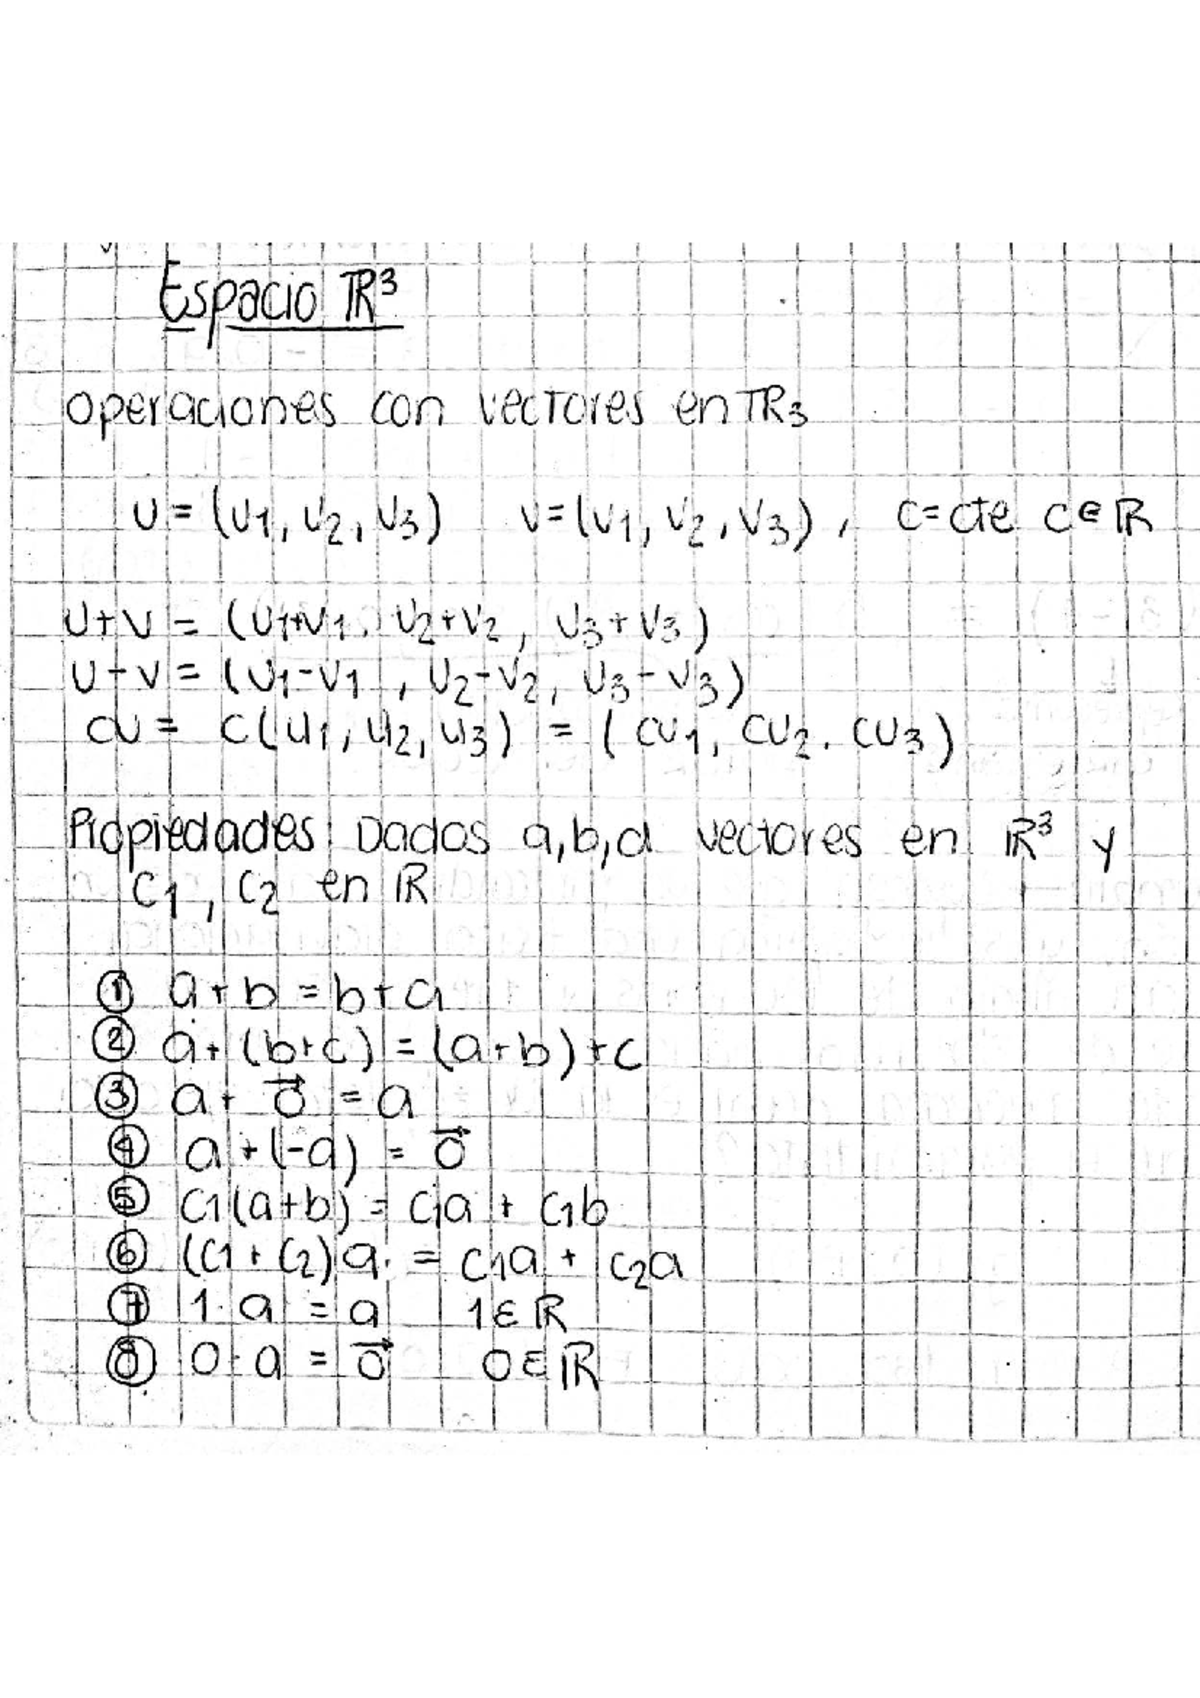 Espacio ℝ³
operaciones con vectores en ℝ3
u = (u1, u2, u3) v=(v1, v2, v3), c=cte c∈ℝ
u+v = (u1+v1, u2+v2, u3+v3)
u-v = (u1-v1, u2-v2, u3-v3)
cu = c(u1, u2, u3) = (cu1, cu2, cu3)
Propiedades: Dados a,b,d vectores en ℝ³ y
c1, c2 en ℝ
① a+b = b+a
② a+(b+c) = (a+b)+c
③ a+ 0⃗ = a
④ a+(-a) = 0⃗
⑤ c1(a+b) = c1a + c1b
⑥ (c1+c2)a = c1a + c2a
⑦ 1·a = a 1∈ℝ
⑧ 0·a = 0⃗ 0∈ℝ